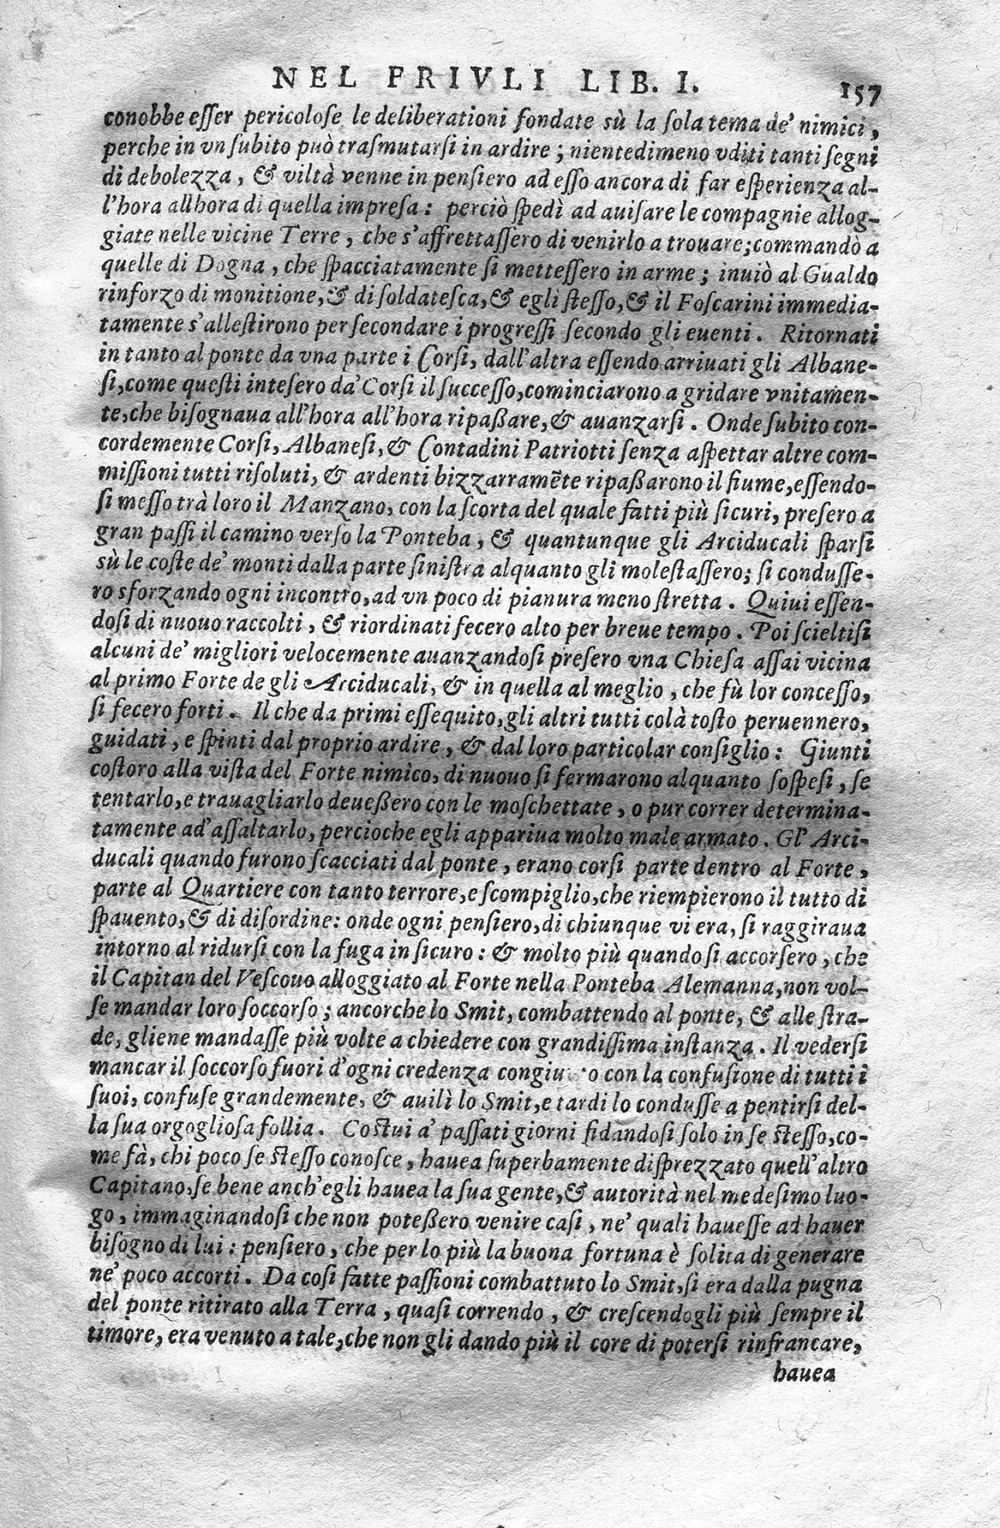 NEL FRIVLI LIB. I. 157
conobbe esser pericolose le deliberationi fondate sù la sola tema de' nimici,
perche in vn subito può trasmutarsi in ardire; nientedimeno vditi tanti segni
di debolezza, & viltà venne in pensiero ad esso ancora di far esperienza al-
l'hora allhora di quella impresa: perciò spedì ad auisare le compagnie allog-
giate nelle vicine Terre, che s'affrettassero di venirlo a trouare; commandò a
quelle di Dogna, che spacciatamente si mettessero in arme; inuiò al Gualdo
rinforzo di monitione, & di soldatesca, & egli stesso, & il Foscarini immedia-
tamente s'allestirono per secondare i progressi secondo gli euenti. Ritornati
in tanto al ponte da vna parte i Corsi, dall'altra essendo arriuati gli Albane-
si, come questi intesero da' Corsi il successo, cominciarono a gridare vnitamen-
te, che bisognaua all'hora all'hora ripaßare, & auanzarsi. Onde subito con-
cordemente Corsi, Albanesi, & Contadini Patriotti senza aspettar altre com-
missioni tutti risoluti, & ardenti bizzarramẽte ripaßarono il fiume, essendo-
si messo trà loro il Manzano, con la scorta del quale fatti più sicuri, presero a
gran passi il camino verso la Ponteba, & quantunque gli Arciducali sparsi
sù le coste de' monti dalla parte sinistra alquanto gli molestassero; si condusse-
ro sforzando ogni incontro, ad vn poco di pianura meno stretta. Quiui essen-
dosi di nuouo raccolti, & riordinati fecero alto per breue tempo. Poi scieltisi
alcuni de' migliori velocemente auanzandosi presero vna Chiesa assai vicina
al primo Forte de gli Arciducali, & in quella al meglio, che fù lor concesso,
si fecero forti. Il che da primi essequito, gli altri tutti colà tosto peruennero,
guidati, e spinti dal proprio ardire, & dal loro particolar consiglio: Giunti
costoro alla vista del Forte nimico, di nuouo si fermarono alquanto sospesi, se
tentarlo, e trauagliarlo deueßero con le moschettate, o pur correr determina-
tamente ad'assaltarlo, percioche egli appariua molto male armato. Gl' Arci-
ducali quando furono scacciati dal ponte, erano corsi parte dentro al Forte,
parte al Quartiere con tanto terrore, e scompiglio, che riempierono il tutto di
spauento, & di disordine: onde ogni pensiero, di chiunque vi era, si raggiraua
intorno al ridursi con la fuga in sicuro: & molto più quando si accorsero, che
il Capitan del Vescouo alloggiato al Forte nella Ponteba Alemanna, non vol-
se mandar loro soccorso; ancorche lo Smit, combattendo al ponte, & alle stra-
de, gliene mandasse più volte a chiedere con grandissima instanza. Il vedersi
mancar il soccorso fuori d'ogni credenza con la confusione di tutti i
suoi, confuse grandemente, & auilì lo Smit, e tardi lo condusse a pentirsi del-
la sua orgogliosa follia. Costui a' passati giorni fidandosi solo in se stesso, co-
me fà, chi poco se stesso conosce, hauea superbamente disprezzato quell'altro
Capitano, se bene anch'egli hauea la sua gente, & autorità nel medesimo luo-
go, immaginandosi che non poteßero venire casi, ne' quali hauesse ad hauer
bisogno di lui: pensiero, che per lo più la buona fortuna è solita di generare
ne' poco accorti. Da cosi fatte passioni combattuto lo Smit, si era dalla pugna
del ponte ritirato alla Terra, quasi correndo, & crescendogli più sempre il
timore, era venuto a tale, che non gli dando più il core di potersi rinfrancare,
hauea